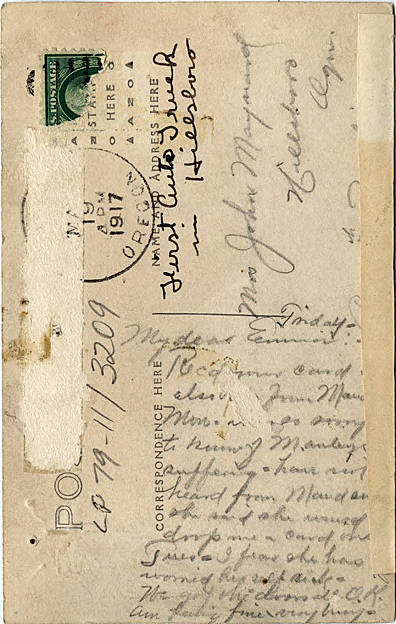 S. POSTAGE
STAMP
HERE
MA
19
4 PM
1917
OREGON
NAME AND ADDRESS HERE
First Auto Truck
in Hillsboro
John Maynard
Hillsboro
Ogn.
LP 79-11/3209
PO
CORRESPONDENCE HERE
Friday-
My dear Emma
Rec'd your card
also from Maud
Mon-
to know Manley
suffering - have not
heard from Maud
she said she would
drop me a card
Tues - I fear she has
worried her self sick -
We got the O.K.
Am fine